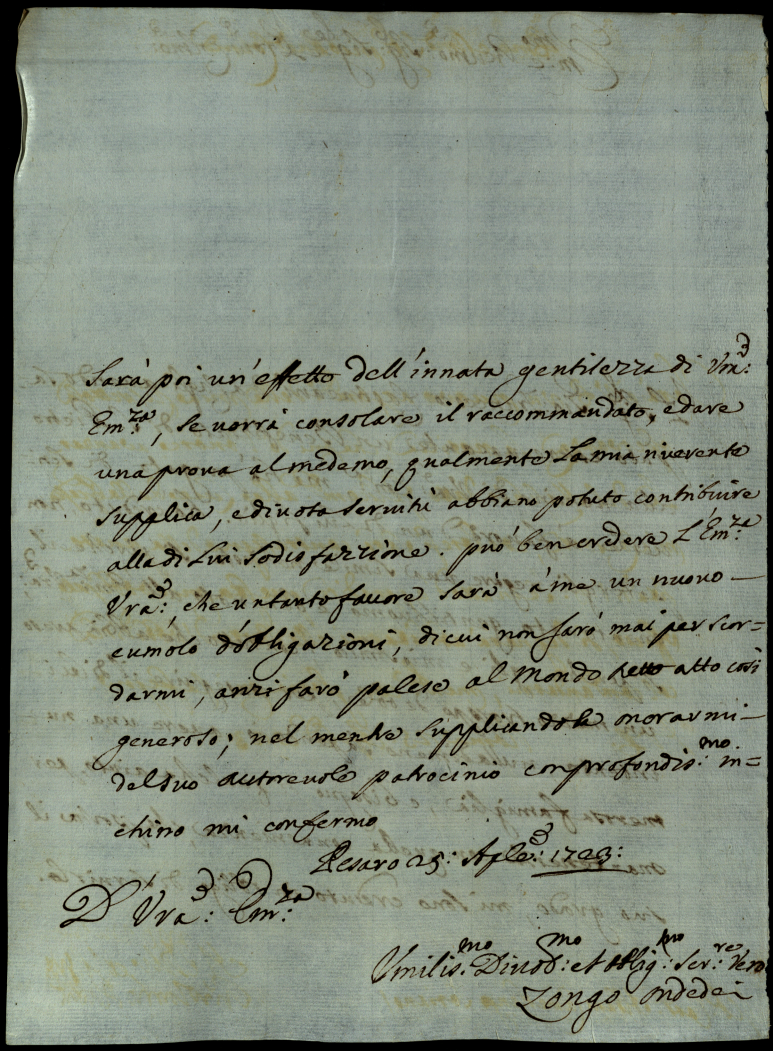 Sarà poi un'effetto dell'innata gentilezza di Vra:
Em:za, se vorrà consolare il raccommandato, e dare
una prova al medemo, qualmente la mia riverente
supplica, e divota servitù abbiano potuto contribuire
alla di lui sodisfazzione. può ben credere L'Em:za
Vra:, che un tanto favore sarà à me un nuovo—
cumolo d'obligazioni, di cui non sarò mai per scor=
darmi, anzi farò palese al Mondo atto così
generoso; nel mentre supplicandola onorarmi—
del suo autorevole patrocinio con profondis:mo in=
chino mi confermo
Pesaro 25: Aple: 1723:
D' Vra: Em:za
Vmilis:mo Divot:mo et oblig:mo Ser:re Vero
Zongo Ondedei